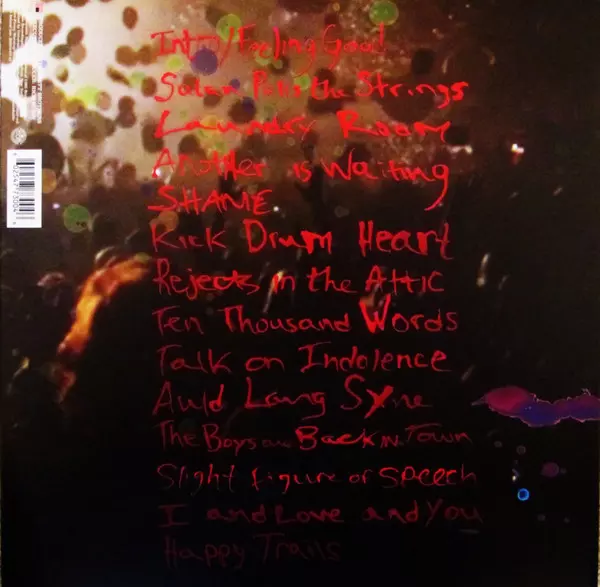 Intro/Feeling Good
Satan Pulls the Strings
Laundry Room
Another is Waiting
SHAME
Kick Drum Heart
Rejects in the Attic
Ten Thousand Words
Talk on Indolence
Auld Lang Syne
The Boys are Back in Town
Slight figure of Speech
I and Love and You
Happy Trails